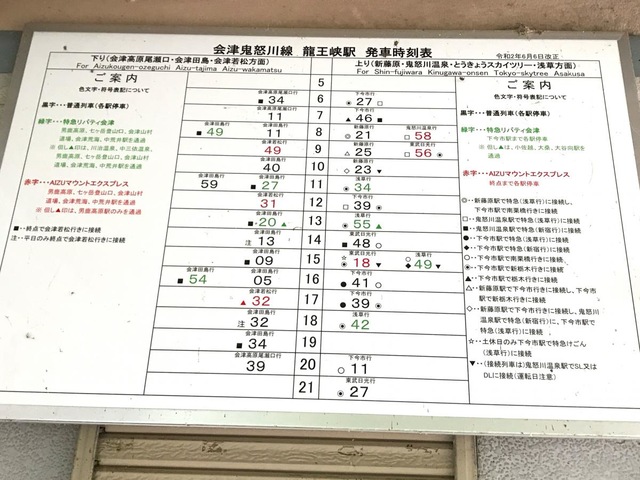 会津鬼怒川線 龍王峡駅 発車時刻表
令和2年6月6日改正
下り(会津高原尾瀬口・会津田島・会津若松方面)
For Aizukougen-ozeguchi Aizu-tajima Aizu-wakamatsu
上り(新藤原・鬼怒川温泉・とうきょうスカイツリー・浅草方面)
For Shin-fujiwara Kinugawa-onsen Tokyo-skytree Asakusa
ご案内
色文字・符号表記について
黒字・・・普通列車(各駅停車)
緑字・・・特急リバティ会津
男鹿高原、七ヶ岳登山口、会津山村
道場、会津荒海、中荒井駅を通過
※但し▲印は、川治温泉、中三依温泉、
男鹿高原、七ヶ岳登山口、会津山村
道場、会津荒海、中荒井駅を通過
赤字・・・AIZUマウントエクスプレス
男鹿高原、七ヶ岳登山口、会津山村
道場、会津荒海、中荒井駅を通過
※但し▲印は、男鹿高原駅のみを通過
■・・終点で会津若松行きに接続
注・・平日のみ終点で会津若松行きに接続
5
会津高原尾瀬口行 下今市行
■34 6 ⦿27□
会津高原尾瀬口行 下今市行
11 7 ▲46■
会津田島行 会津高原尾瀬口行 新藤原行 鬼怒川温泉行
■49 11 8 ◎21 □58
会津若松行 新藤原行 東武日光行
49 9 △25 □56⦿
会津田島行 新藤原行
40 10 ◇23▼
会津田島行 会津田島行 浅草行
59 ■27 11 ⦿34
会津若松行 下今市行
31 12 □39⦿
会津田島行 浅草行
■・20▲ 13 ⦿55▲
会津田島行 東武日光行
注13 14 ■48○
会津田島行 東武日光行 浅草行
■09 15 ☆⦿18▼ ○◆49▼
会津田島行 会津田島行 下今市行
■54 05 16 ●41○
会津若松行 下今市行
▲32 17 ●39⦿
会津田島行 浅草行
注32 18 ⦿42
会津田島行
■34 19
会津高原尾瀬口行 下今市行
39 20 ○11
東武日光行
21 ⦿27
ご案内
色文字・符号表記について
黒字・・・普通列車(各駅停車)
緑字・・・特急リバティ会津
下今市駅まで各駅停車
※但し▲印は、小佐越、大桑、大谷向駅を
通過
赤字・・・AIZUマウントエクスプレス
終点まで各駅停車
◎・・新藤原駅で特急(浅草行)に接続し、
下今市駅で南栗橋行きに接続
□・・鬼怒川温泉駅で特急(浅草行)に接続
■・・鬼怒川温泉駅で特急(新宿行)に接続
●・・下今市駅で特急(浅草行)に接続
◆・・下今市駅で特急(新宿行)に接続
○・・下今市駅で南栗橋行きに接続
⦿・・下今市駅で新栃木行きに接続
▲・・下今市駅で栃木行きに接続
△・・新藤原駅で下今市行きに接続し、下今市
駅で新栃木行きに接続
◇・・新藤原駅で下今市行きに接続し、鬼怒川
温泉駅で特急(新宿行)に、下今市駅で
特急(浅草行)に接続
☆・・土休日のみ下今市駅で特急けごん
(浅草行)に接続
▼・・(接続列車は)鬼怒川温泉駅でSL又は
DLに接続(運転日注意)